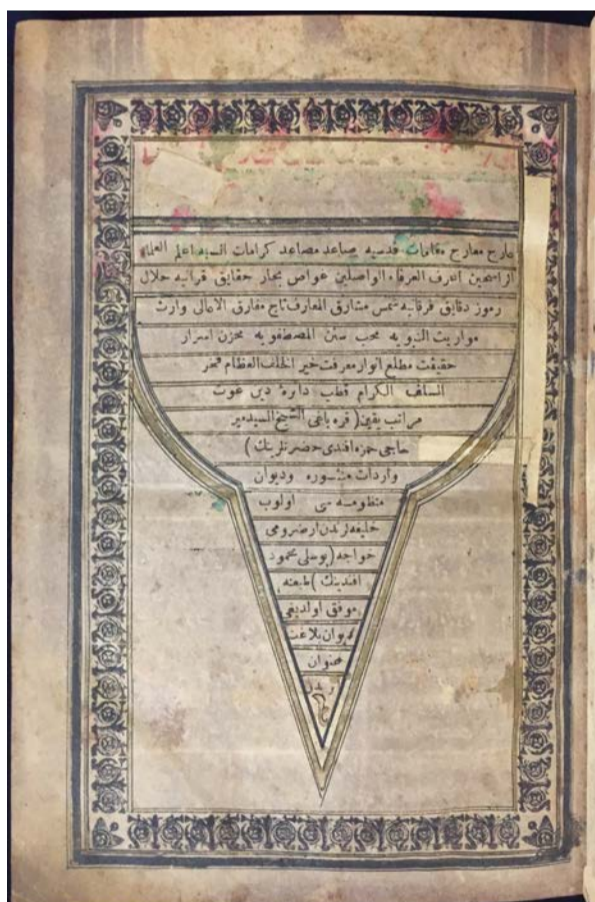 عارج معارج مقامات قدسیه صاعد مصاعد کرامات السیه اعلم العلماء
الراسخین اشرف العرفاء الواصلین غواص بحار حقایق قرانیه حلال
رموز دقایق فرقانیه شمس مشارق المعارف تاج مفارق الامالی وارث
مواریث النبویه محب سنن المصطفویه مخزن اسرار
حقیقت مطلع انوار معرفت خیر الخلف العظام فخر
السلف الکرام قطب دائرۀ دین غوث
مراتب یقین (قره باغی الشیخ السید میر
حاجی حمزه افندی حضرتلرینك)
واردات منثوره ودیوان
منظومه سی اولوب
خلیفه لرندن ارضرومی
خواجه (یوسفلی محمود
افندینك) طبعنه
موفق اولدیغی
دیوان بلاغت
عنوان